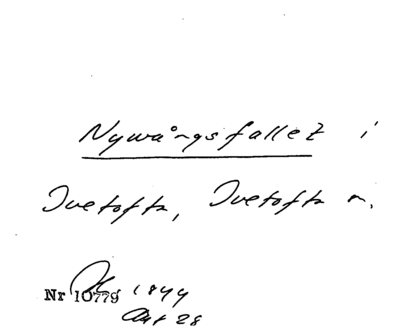 Nywångsfallet i
Ivetofta, Ivetofta n.
Nr 10779 1844
Akt 28